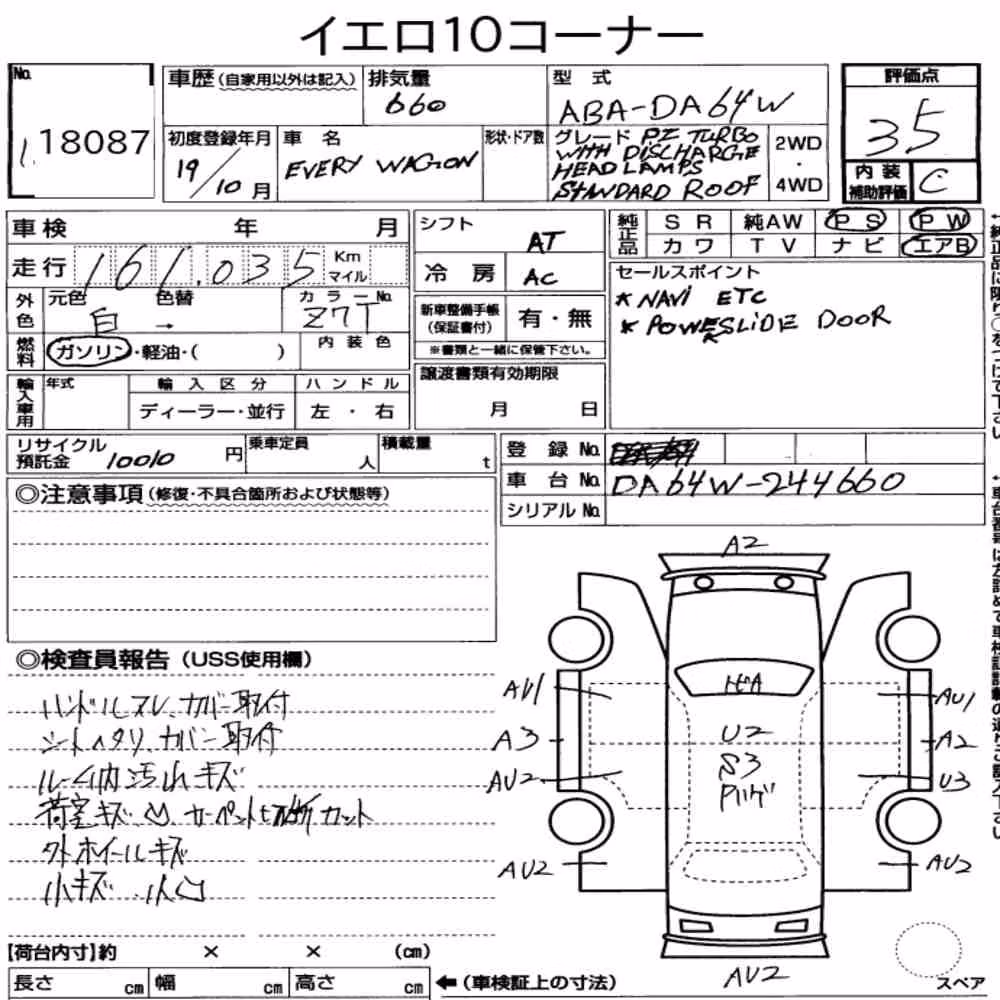 イエロ10コーナー
No.
1. 18087
車歴 (自家用以外は記入)
排気量
660
型式
ABA-DA64W
評価点
35
内装補助評価
C
初度登録年月
19/10月
車名
EVERY WAGON
形状・ドア数
グレード PZ TURBO
WITH DISCHARGE
HEAD LAMPS
STANDARD ROOF
2WD
・
4WD
車検 年 月
走行 161,035 Km
マイル
外色
元色 色替
白 →
カラーNo.
Z7T
燃料
ガソリン・軽油・( )
内装色
輸入車用
年式
輸入区分
ディーラー・並行
ハンドル
左・右
シフト
AT
冷房
AC
新車整備手帳
(保証書付)
有・無
※書類と一緒に保管下さい。
譲渡書類有効期限
月 日
純正品
SR 純AW PS PW
カワ TV ナビ エアB
セールスポイント
* NAVI ETC
* POWE SLIDE DOOR
R
リサイクル
預託金 10010 円
乗車定員
人
積載量
t
登録No.
車台No. DA64W-244660
シリアルNo.
◎注意事項 (修復・不具合箇所および状態等)
◎検査員報告 (USS使用欄)
ハンドルスレ、カバー取付
シートヘタリ、カバー取付
ルーム内汚れキズ
荷室キズ凹 カーペット カット
外ホイールキズ
小キズ、小凹
A2
AU1
A3
AU2
AU2
トビA
U2
S3
AU1
A2
U3
AU2
AU2
スペア
【荷台内寸】約 × × (cm)
長さ cm 幅 cm 高さ cm
←(車検証上の寸法)